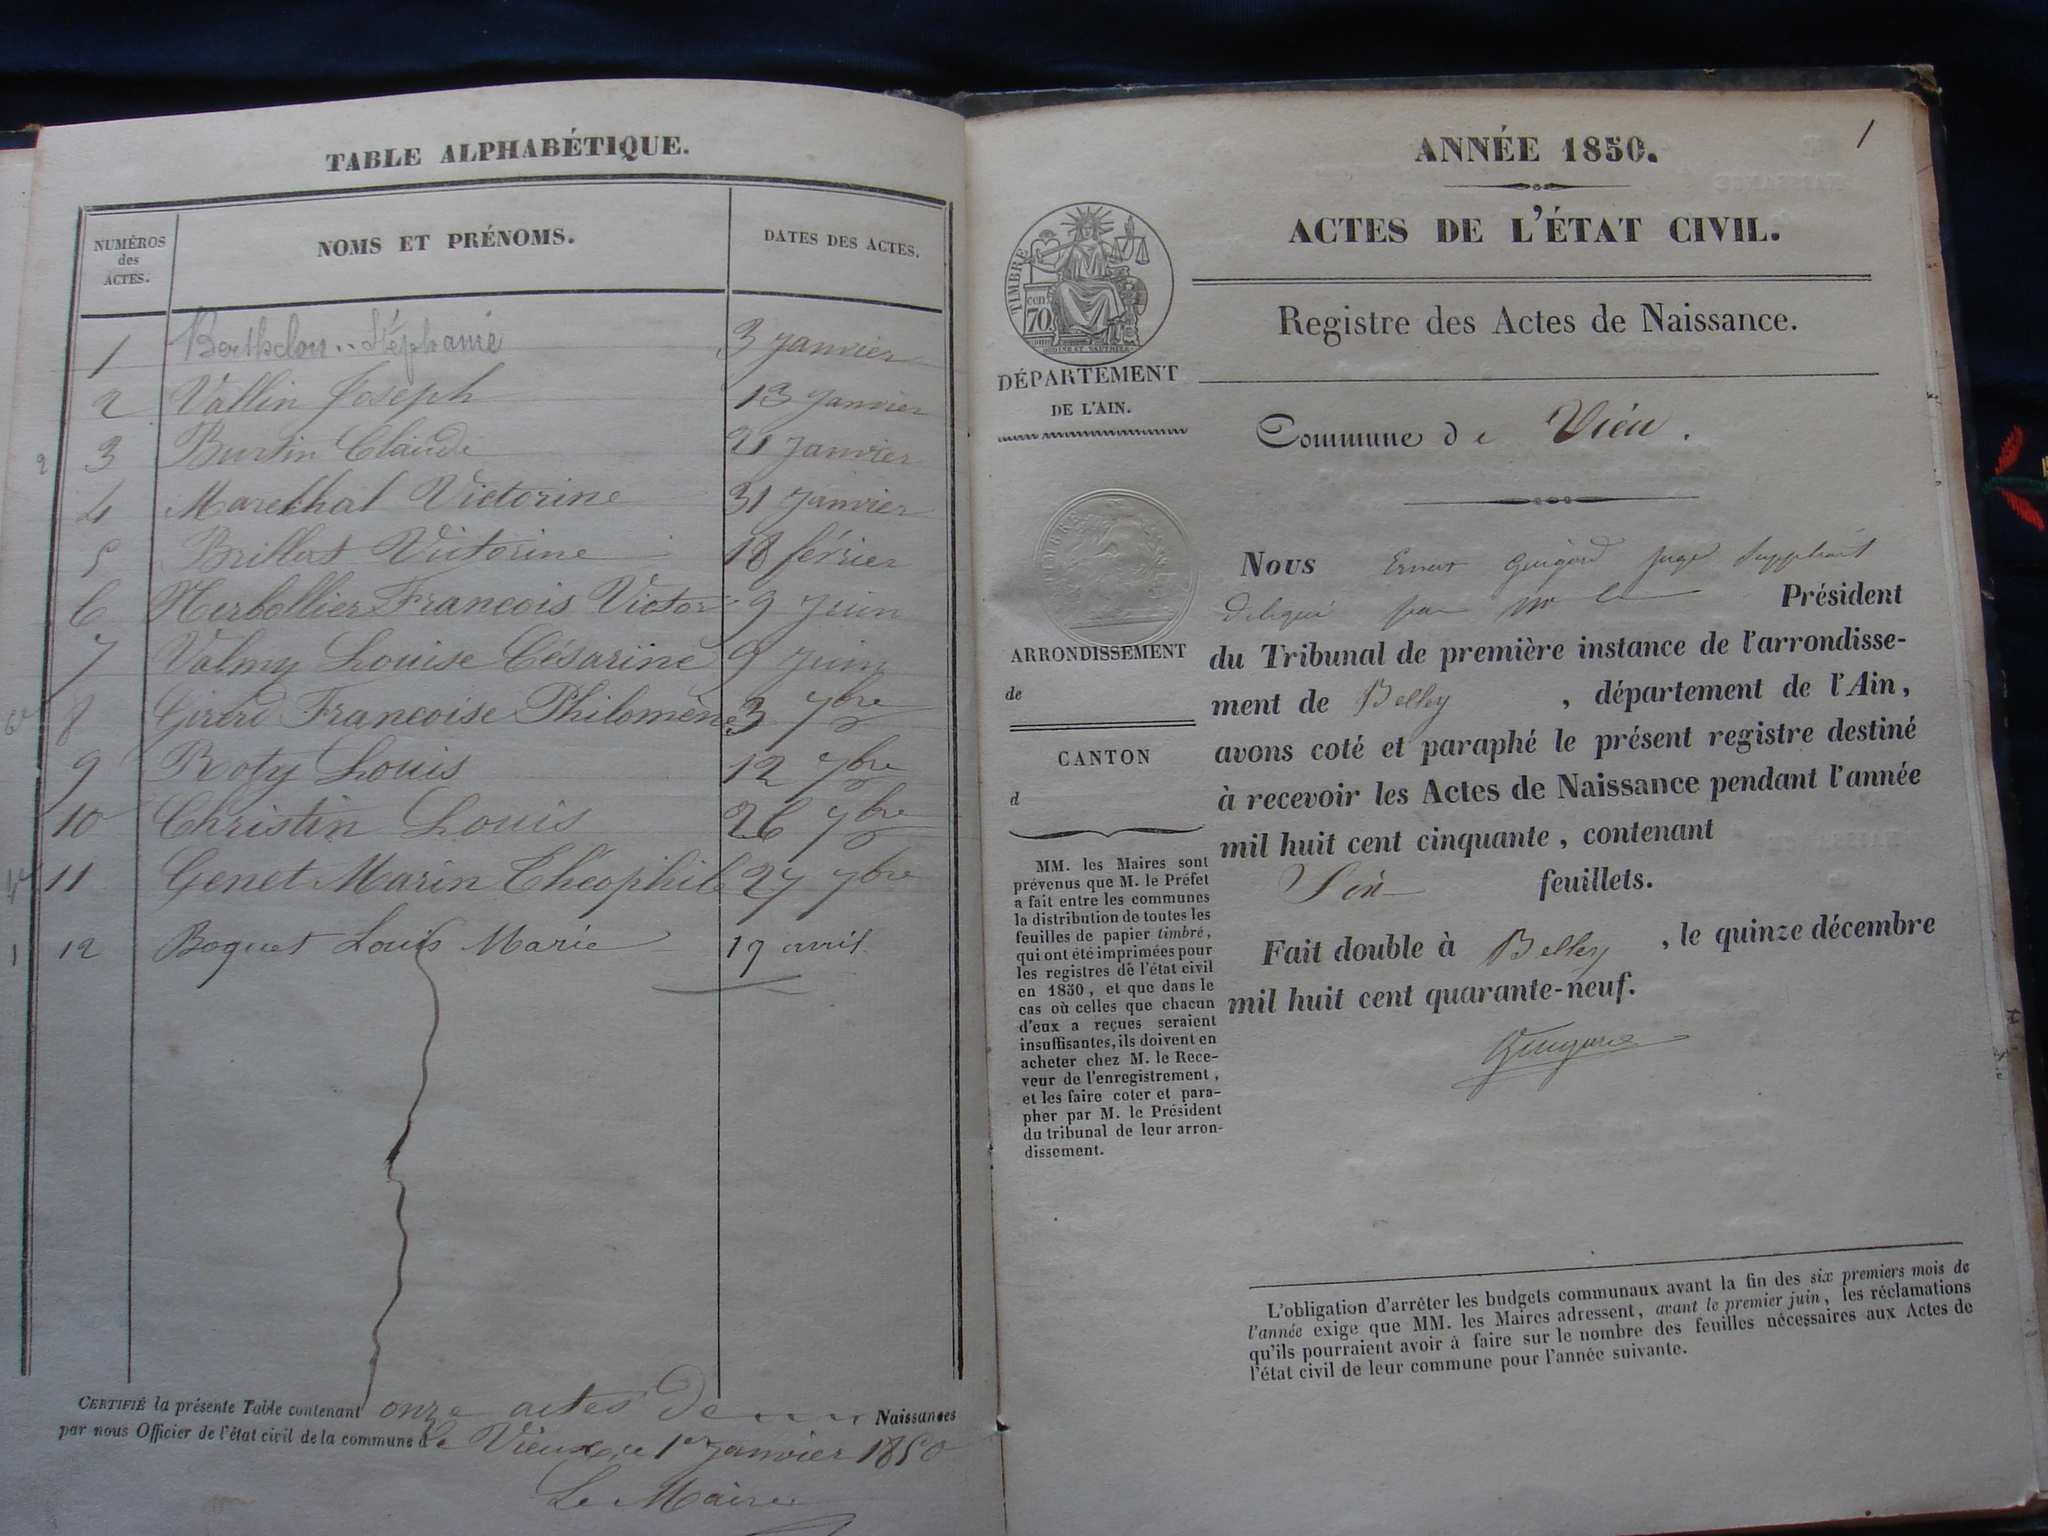 TABLE ALPHABÉTIQUE.
NUMÉROS des ACTES.
NOMS ET PRÉNOMS.
DATES DES ACTES.
1 Berthelon Stéphanie 3 Janvier
2 Vallin Joseph 13 Janvier
3 Burtin Claude 21 Janvier
4 Marechal Victorine 31 Janvier
5 Brillat Victorine 18 février
6 Herbollier Francois Victor 9 Juin
7 Valmy Louise Césarine 9 Juin
8 Girerd Francoise Philomène 3 7bre
9 Roty Louis 12 7bre
10 Christin Louis 26 7bre
11 Genet Marin Théophile 27 7bre
12 Boquet Louis Marie 17 avril
CERTIFIÉ la présente Table contenant onze actes de Naissances
par nous Officier de l'état civil de la commune d Vieux ce 1er Janvier 1850
Le Maire
1
ANNÉE 1850.
ACTES DE L'ÉTAT CIVIL.
Registre des Actes de Naissance.
TIMBRE
cen
70
DÉPARTEMENT
DE L'AIN.
Commune de Vieu.
Nous Ernest Guigard Juge Suppléant
délégué par Mr le Président
du Tribunal de première instance de l'arrondisse-
ment de Belley, département de l'Ain,
avons coté et paraphé le présent registre destiné
à recevoir les Actes de Naissance pendant l'année
mil huit cent cinquante, contenant
feuillets.
Fait double à Belley, le quinze décembre
mil huit cent quarante-neuf.
ARRONDISSEMENT
de
CANTON
d
MM. les Maires sont
prévenus que M. le Préfet
a fait entre les communes
la distribution de toutes les
feuilles de papier timbré,
qui ont été imprimées pour
les registres de l'état civil
en 1850, et que dans le
cas où celles que chacun
d'eux a reçues seraient
insuffisantes, ils doivent en
acheter chez M. le Rece-
veur de l'enregistrement,
et les faire coter et para-
pher par M. le Président
du tribunal de leur arron-
dissement.
L'obligation d'arrêter les budgets communaux avant la fin des six premiers mois de
l'année exige que MM. les Maires adressent, avant le premier juin, les réclamations
qu'ils pourraient avoir à faire sur le nombre des feuilles nécessaires aux Actes de
l'état civil de leur commune pour l'année suivante.